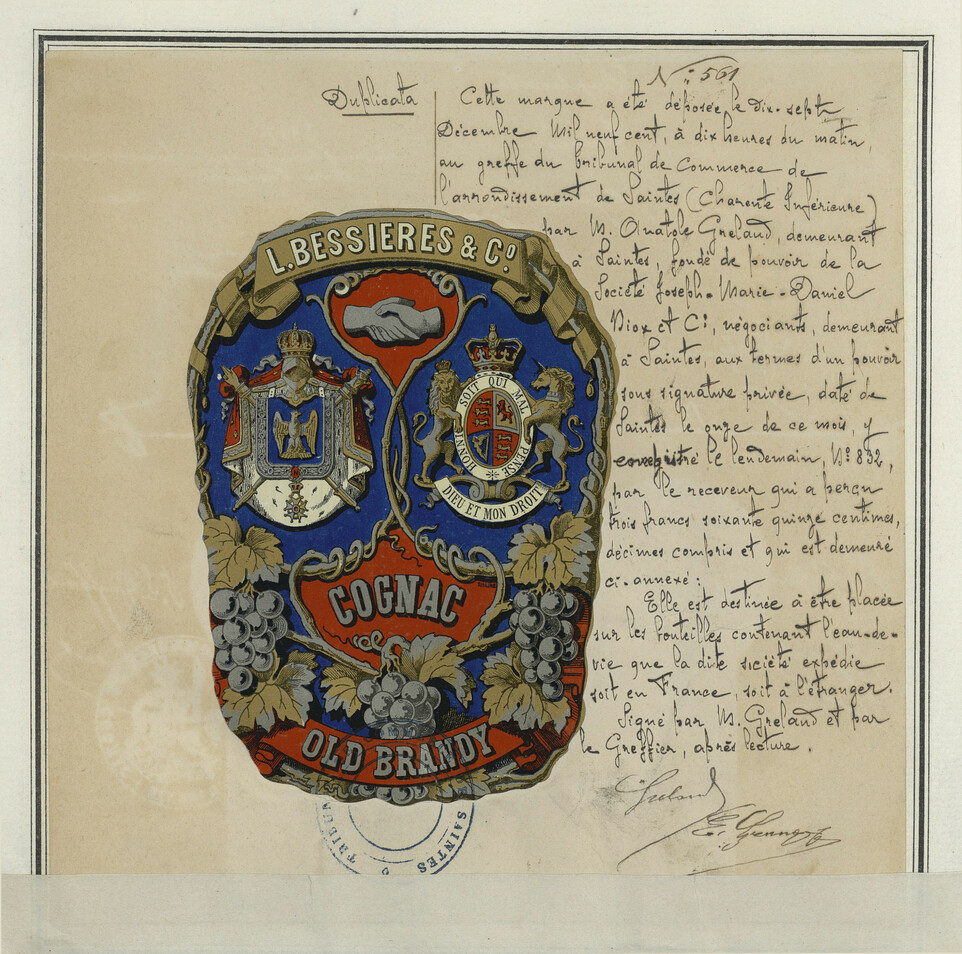 N° 561
Duplicata
Cette marque a été déposée le dix-sept
Décembre Mil neuf cent, à dix heures du matin,
au greffe du tribunal de Commerce de
l'arrondissement de Saintes (Charente Inférieure)
par M. Anatole Greland, demeurant
à Saintes, fondé de pouvoir de la
Société Joseph-Marie-Daniel
Niox et Cie, négociants, demeurant
à Saintes, aux termes d'un pouvoir
sous signature privée, daté de
Saintes le onze de ce mois, y
enregistré le lendemain, N° 832,
par le receveur qui a perçu
trois francs soixante quinze centimes,
décimes compris et qui est demeuré
ci-annexé :
Elle est destinée à être placée
sur les bouteilles contenant l'eau-de-
vie que la dite société expédie
soit en France, soit à l'étranger.
Signé par M. Greland et par
le Greffier, après lecture.
Greland
L. BESSIERES & Co.
HONNI SOIT QUI MAL Y PENSE
DIEU ET MON DROIT
COGNAC
OLD BRANDY
TRIBUN
SAINTES